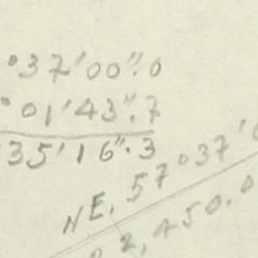 °37'00".0
°01'43".7
35'16".3
NE, 57°37'0
2,450.0